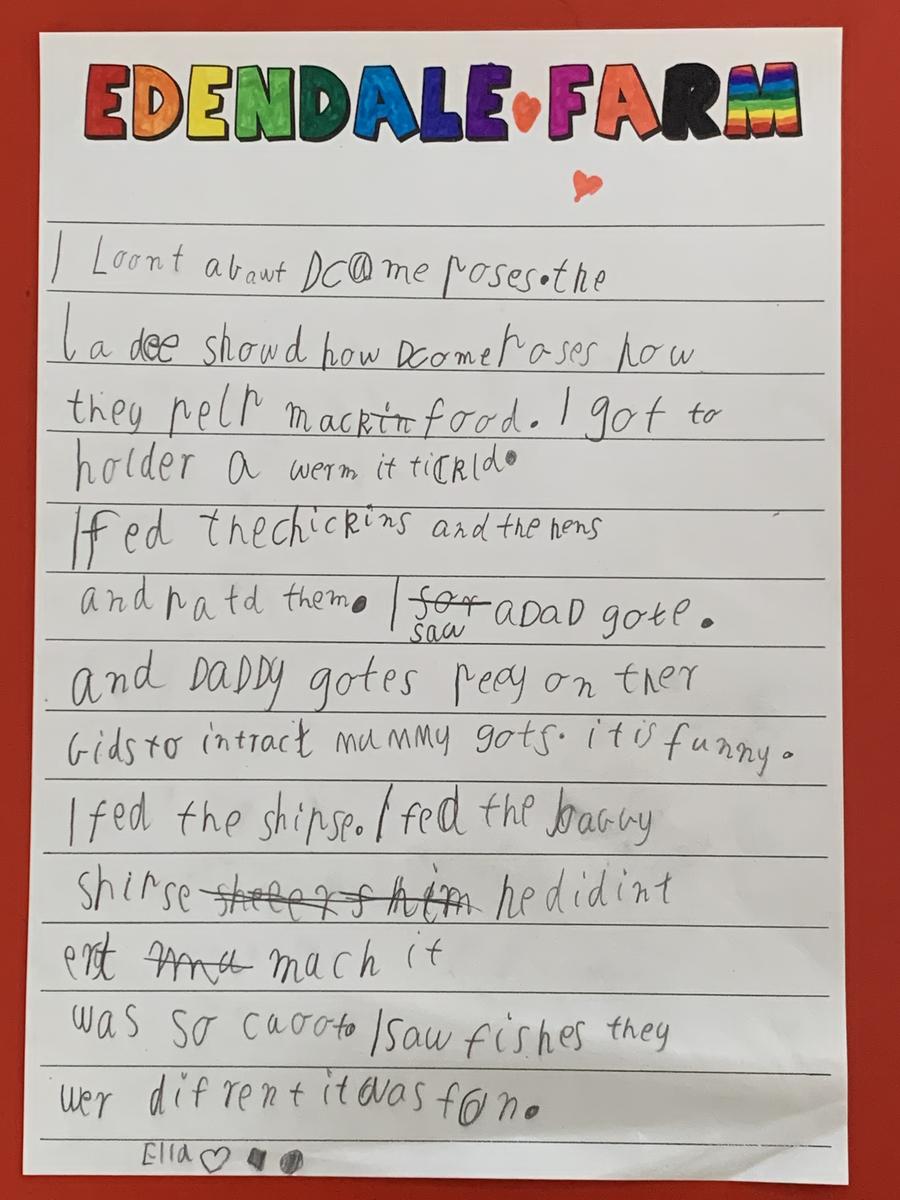 EDENDALE FARM
I Loont abawt DCome poses. the
Ladee showd how Dcomepases how
they pelp mackin food. I got to
holder a werm it tickld.
I fed thechickins and the hens
and patd them. I sor saw aDaD gote.
and DADDY gotes peey on ther
Gids to intract mummy gots. it is funny.
I fed the shipse. I fed the
shipse he did int
ert mach it
was so I saw fishes they
wer difrent it was fon.
Ella